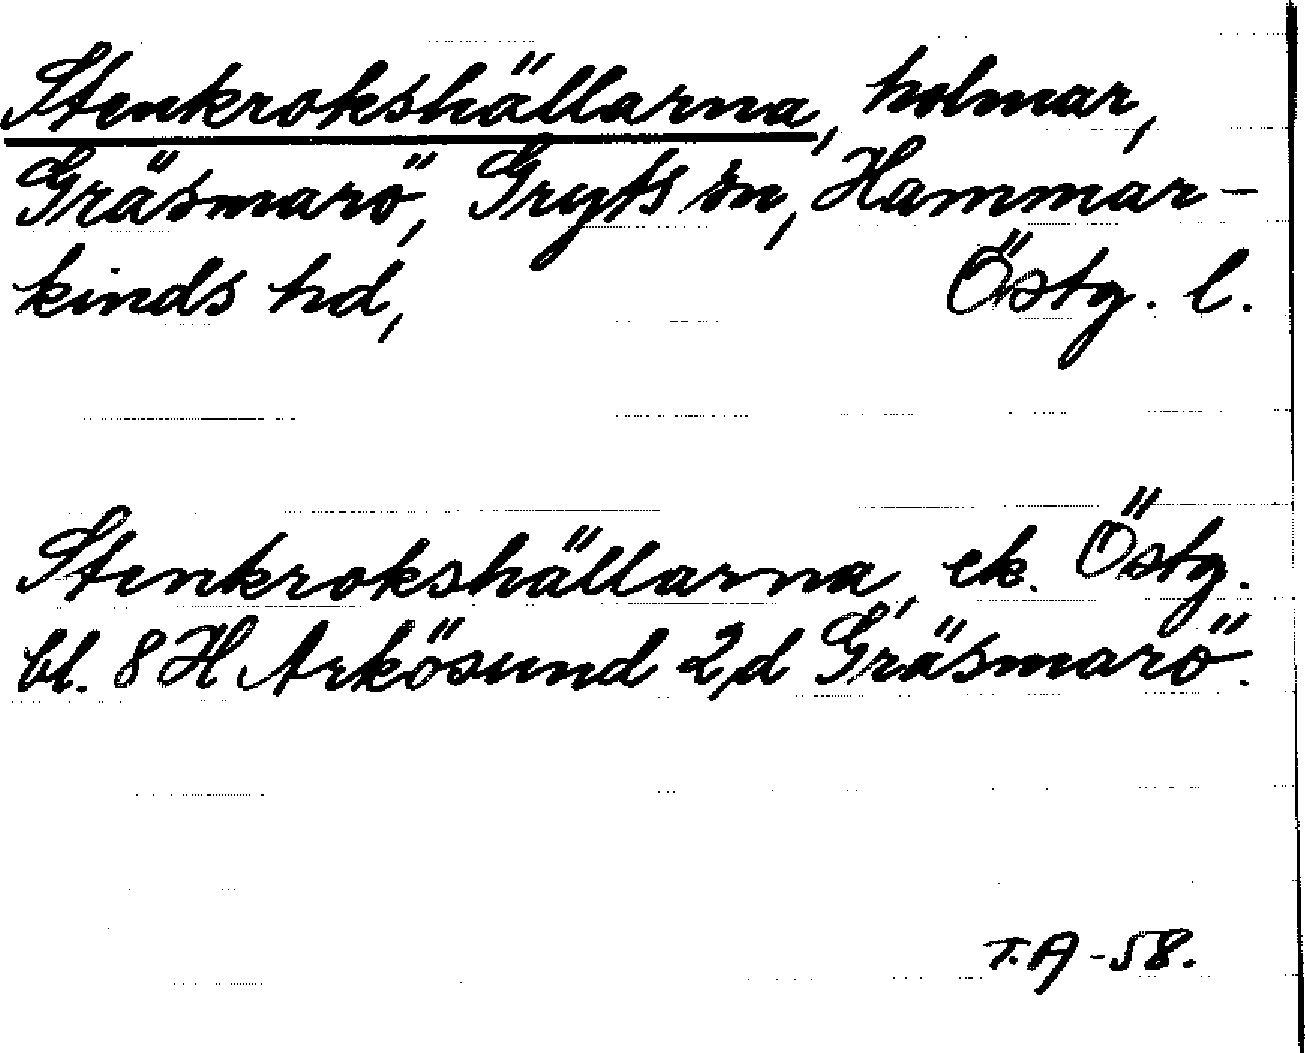 Stenkrokshällarna, holmar,
Gräsmarö, Gryts sn, Hammar-
kinds hd, Östg. l.
Stenkrokshällarna, ek. Östg.
bl. 8 H Arkösund 2,d Gräsmarö.
T.A-58.